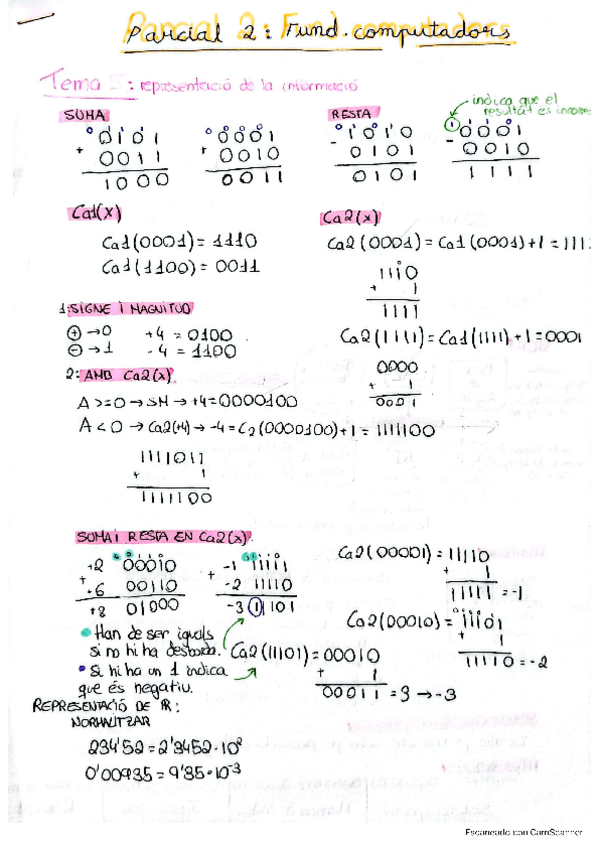 Parcial 2: Fund. computadors
Tema 5: representació de la informació
SUMA
0101
+ 0011
1000
0001
+ 0010
0011
RESTA
1010
- 0101
0101
indica que el
resultat es
1 0001
- 0010
1111
Ca1(x)
Ca1(0001) = 1110
Ca1(1100) = 0011
Ca2(x)
Ca2(0001) = Ca1(0001)+1 = 111
1110
+ 1
1111
Ca2(1111) = Ca1(1111)+1 = 0001
0000
+ 1
0001
1: SIGNE I MAGNITUD
+ → 0 +4 = 0100
- → 1 -4 = 1100
2: AMB Ca2(x)
A >= 0 → SM → +4 = 0000100
A < 0 → Ca2(+4) → -4 = C2(0000100)+1 = 1111100
1111011
+ 1
1111100
SUMA I RESTA EN Ca2(x)
+2 00010
+ +6 00110
+8 01000
-1 11111
+ -2 11110
-3 1 1101
Han de ser iguals
si no hi ha desborda.
Si hi ha un 1 indica
que és negatiu.
Ca2(00001) = 11110
+ 1
11111 = -1
Ca2(00010) = 11101
+ 1
11110 = -2
Ca2(11101) = 00010
+ 1
00011 = 3 → -3
REPRESENTACIÓ DE R:
NORMALITZAR
234'52 = 2'3452·10²
0'00935 = 9'35·10⁻³
Escaneado con CamScanner